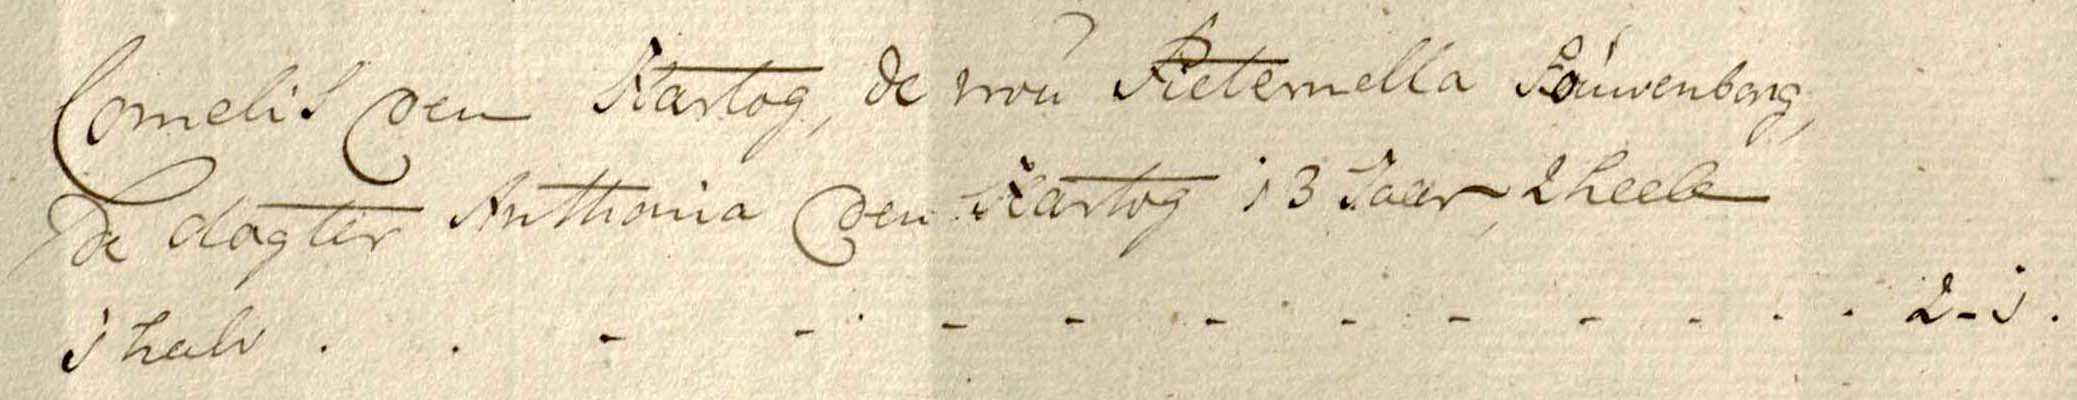 Cornelis den Hartog, de vrou Pieternella Kouwenberg,
De dogter Anthonia den Hartog 13 Jaer, 2 heele
1 halv . . - - . - - - - - - - . . 2 - 1 .